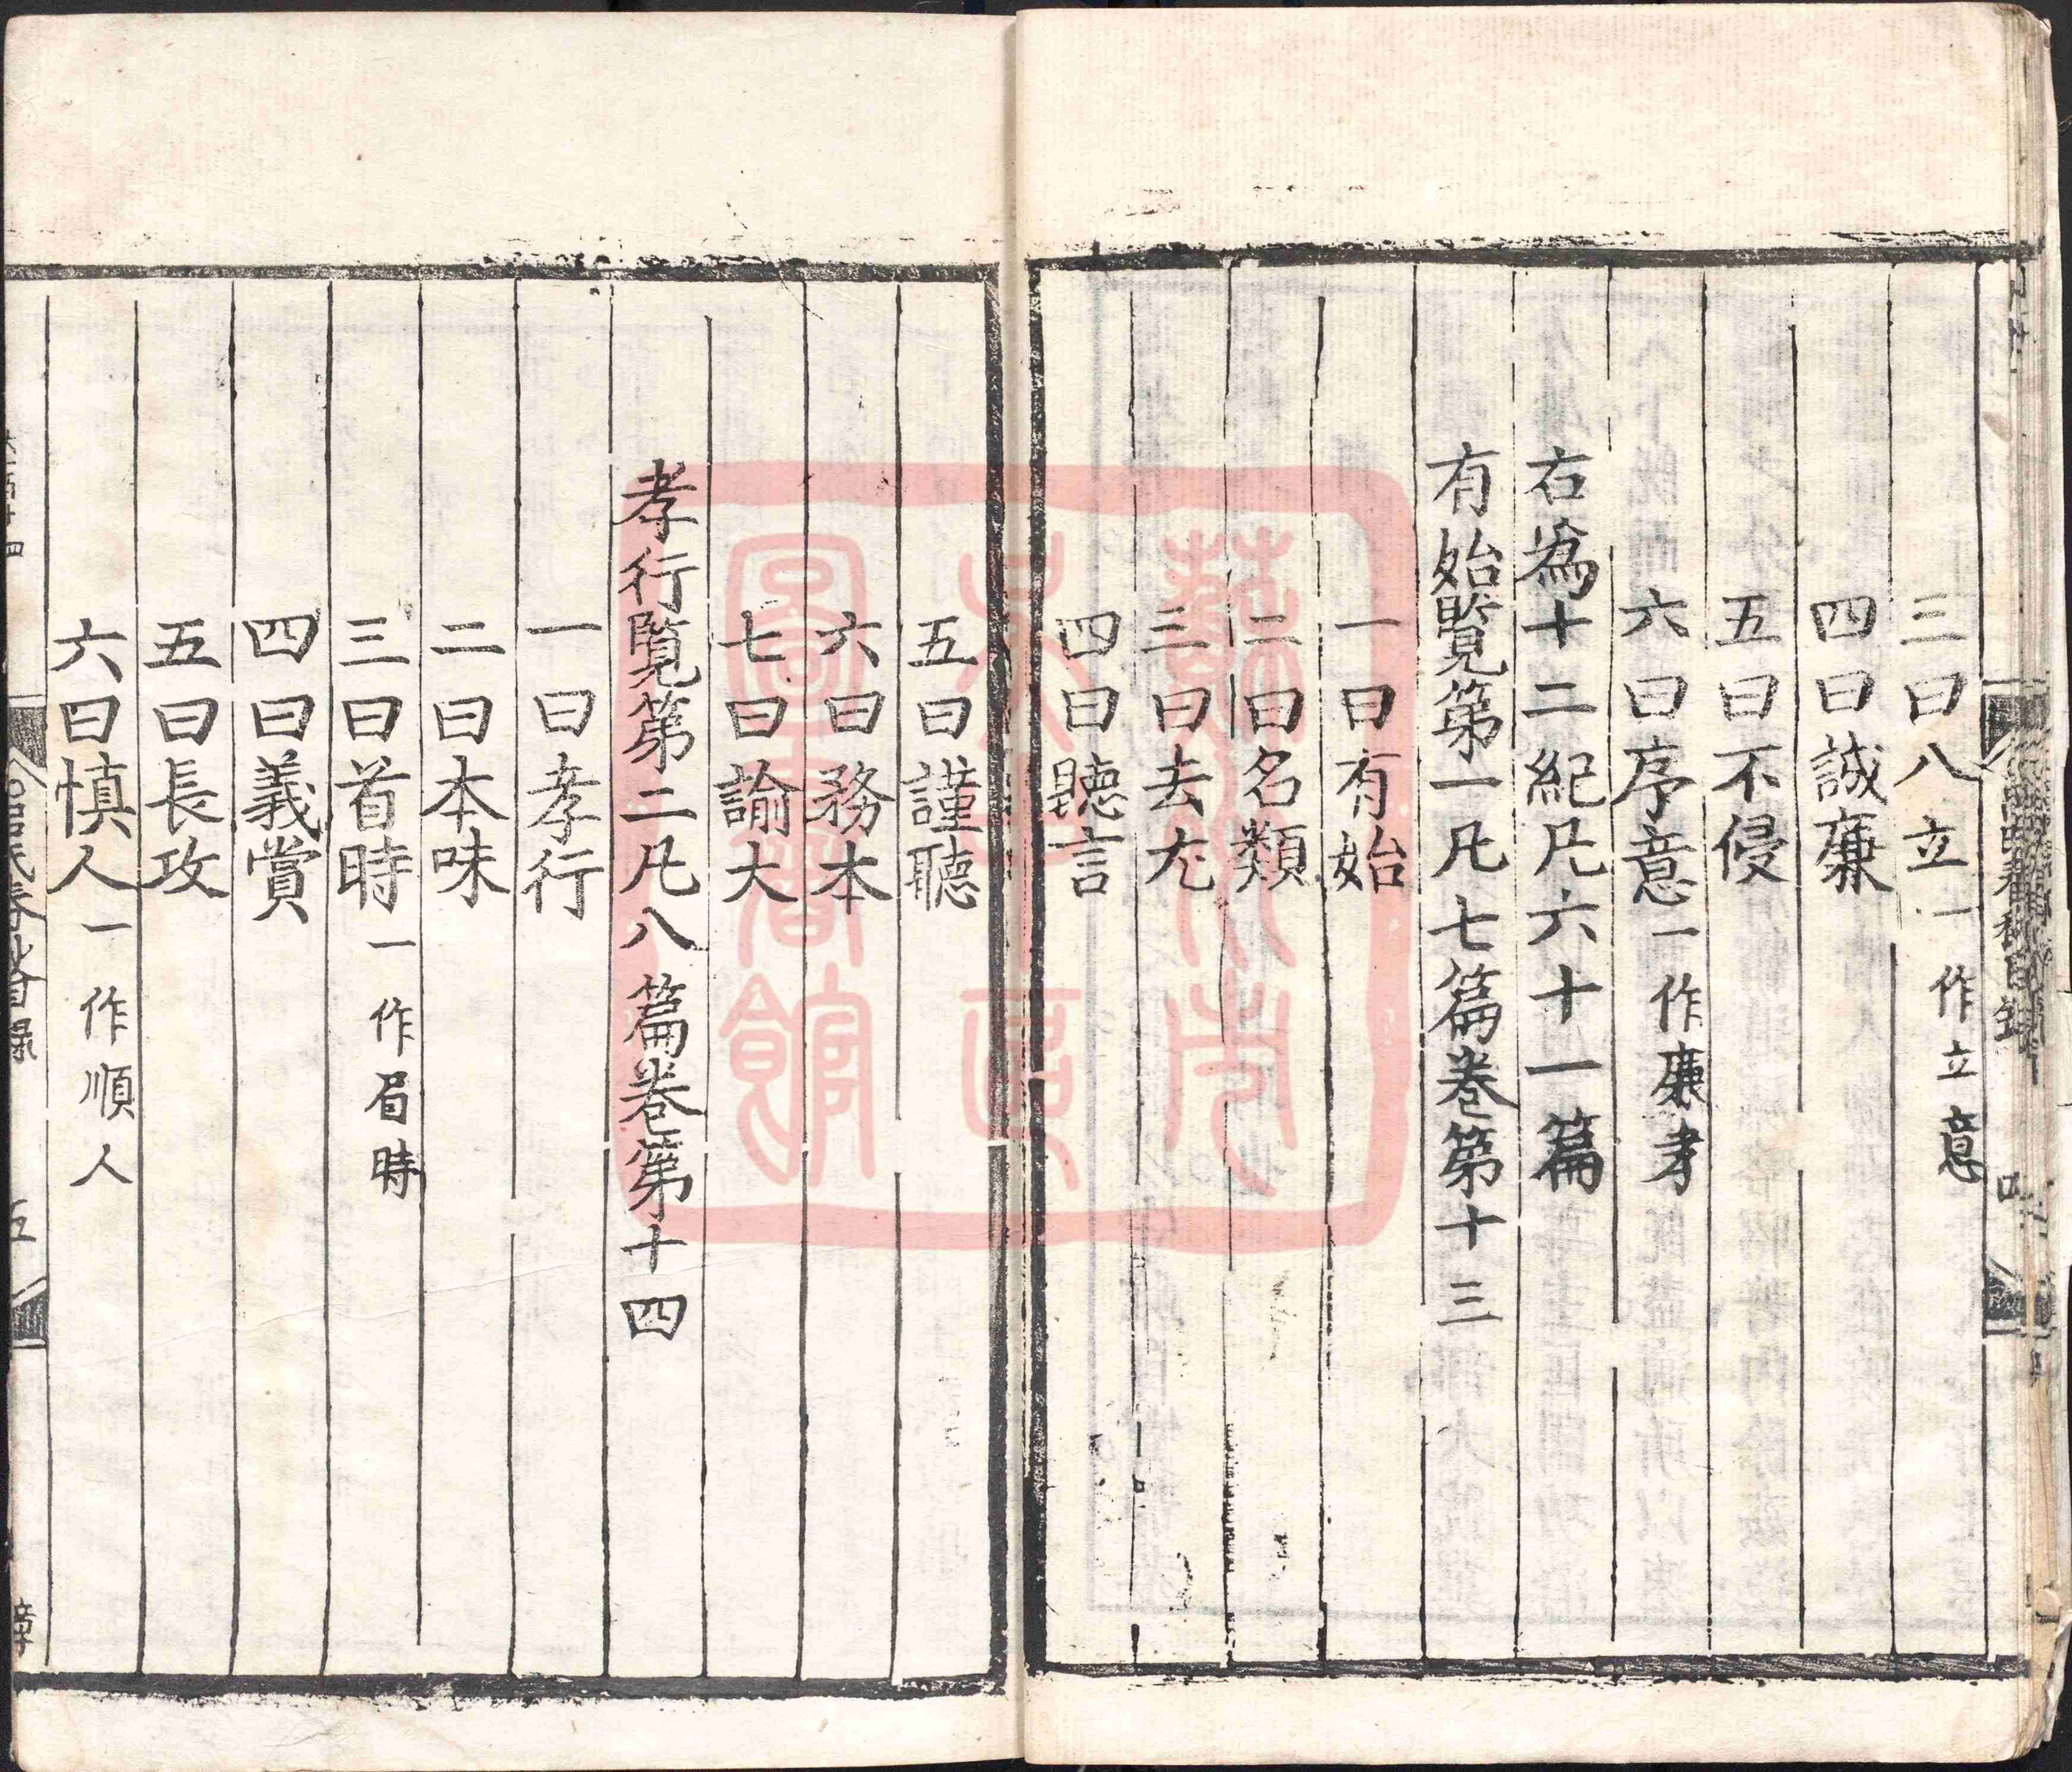 三曰八立一作立意
四曰誠廉
五曰不侵
六曰序意一作廉孝
右爲十二紀凡六十一篇
有始覽第一凡七篇卷第十三
一曰有始
二曰名類
三曰去尤
四曰聽言
五曰謹聽
六曰務本
七曰諭大
孝行覽第二凡八篇卷第十四
一曰孝行
二曰本味
三曰首時一作㫺時
四曰義賞
五曰長攻
六曰慎人一作順人
呂氏春秋目錄
五
章
蘇州市吳中區圖書館